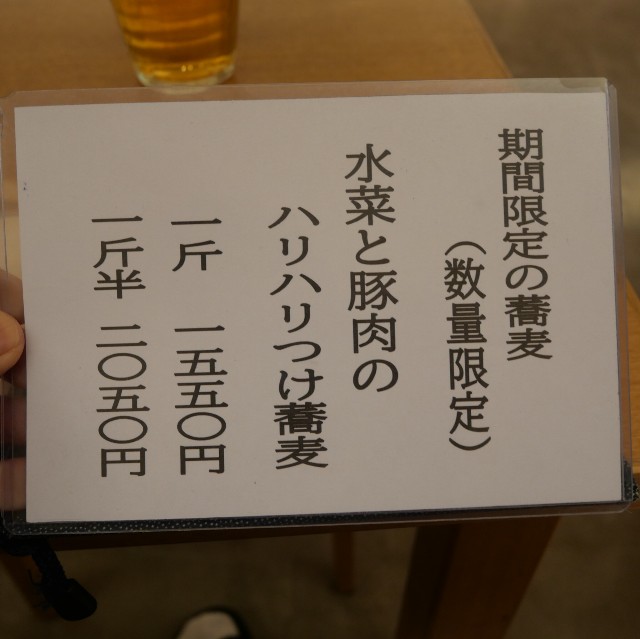 期間限定の蕎麦
（数量限定）
水菜と豚肉の
ハリハリつけ蕎麦
一斤 一五五〇円
一斤半 二〇五〇円